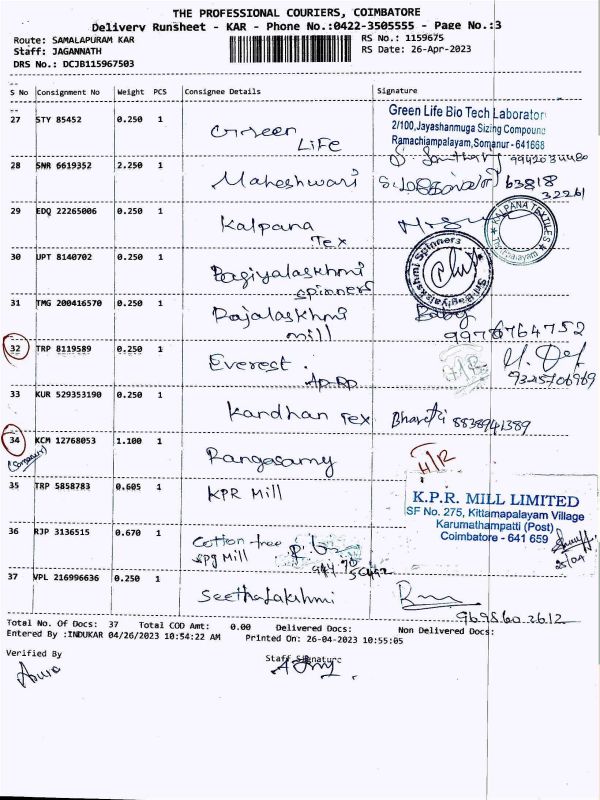 THE PROFESSIONAL COURIERS, COIMBATORE
Delivery Runsheet - KAR - Phone No.:0422-3505555 - Page No.:3
Route: SAMALAPURAM KAR
RS No.: 1159675
Staff: JAGANNATH
RS Date: 26-Apr-2023
DRS No.: DCJB115967503
S No Consignment No Weight PCS Consignee Details Signature
27 STY 85452 0.250 1 Green Life
Green Life Bio Tech Laborator
2/100,Jayashanmuga Sizing Compound
Ramachiampalayam,Somanur - 641668
28 SNR 6619352 2.250 1 Maheshwari
63818
32261
29 EDQ 22265006 0.250 1 Kalpana Tex
KALPANA TEXTILES
30 UPT 8140702 0.250 1 Bagiyalaskhmi spinners
Sri Bagiyalakshmi Spinners
31 TMG 200416570 0.250 1 Rajalaskhmi mill
Baby
9976764752
32 TRP 8119589 0.250 1 Everest
9325706969
33 KUR 529353190 0.250 1 Kandhan Tex
Bharathi 8838941389
34 KCM 12768053 1.100 1 Rangasamy
H/R
35 TRP 5858783 0.605 1 KPR Mill
K.P.R. MILL LIMITED
SF No. 275, Kittamapalayam Village
Karumathampatti (Post)
Coimbatore - 641 659
36 RJP 3136515 0.670 1 Cotton tree spg Mill
37 VPL 216996636 0.250 1 Seethalakshmi
Total No. Of Docs: 37 Total COD Amt: 0.00 Delivered Docs: Non Delivered Docs:
Entered By :INDUKAR 04/26/2023 10:54:22 AM Printed On: 26-04-2023 10:55:05
Verified By
Staff Signature